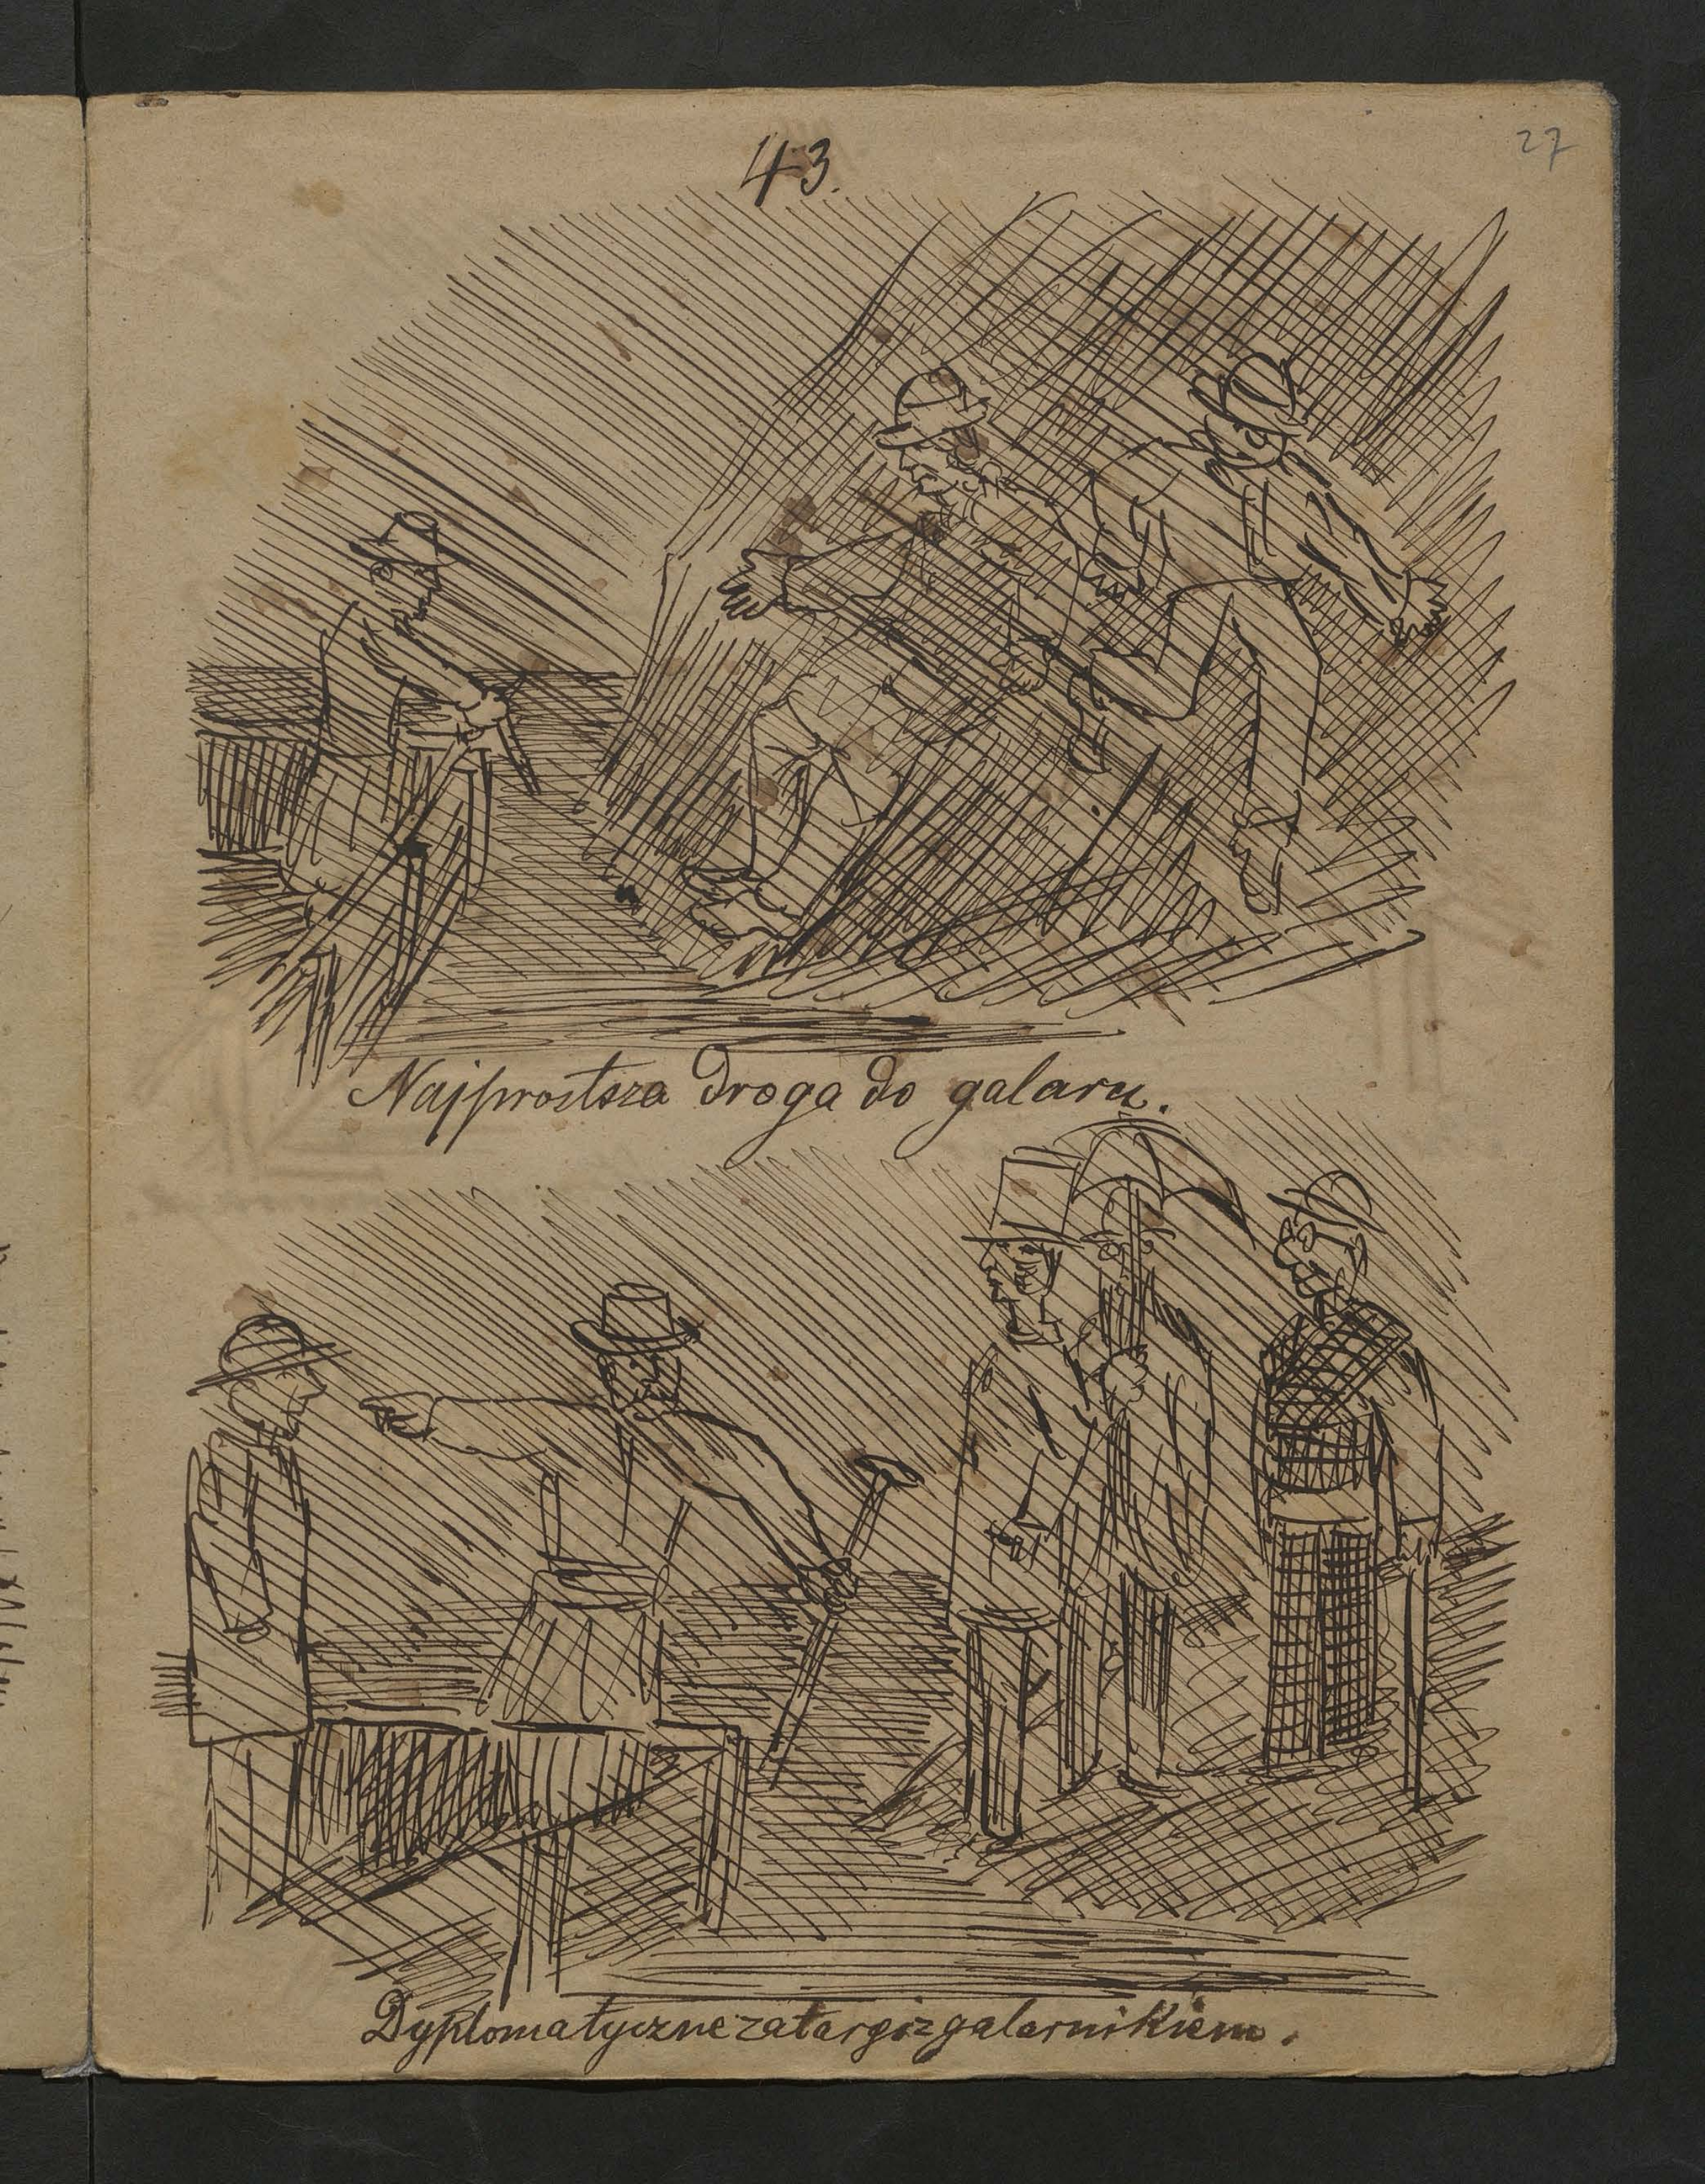 43.
27
Najprostsza droga do galaru.
Dyplomatyczne zatargi z galarnikiem.